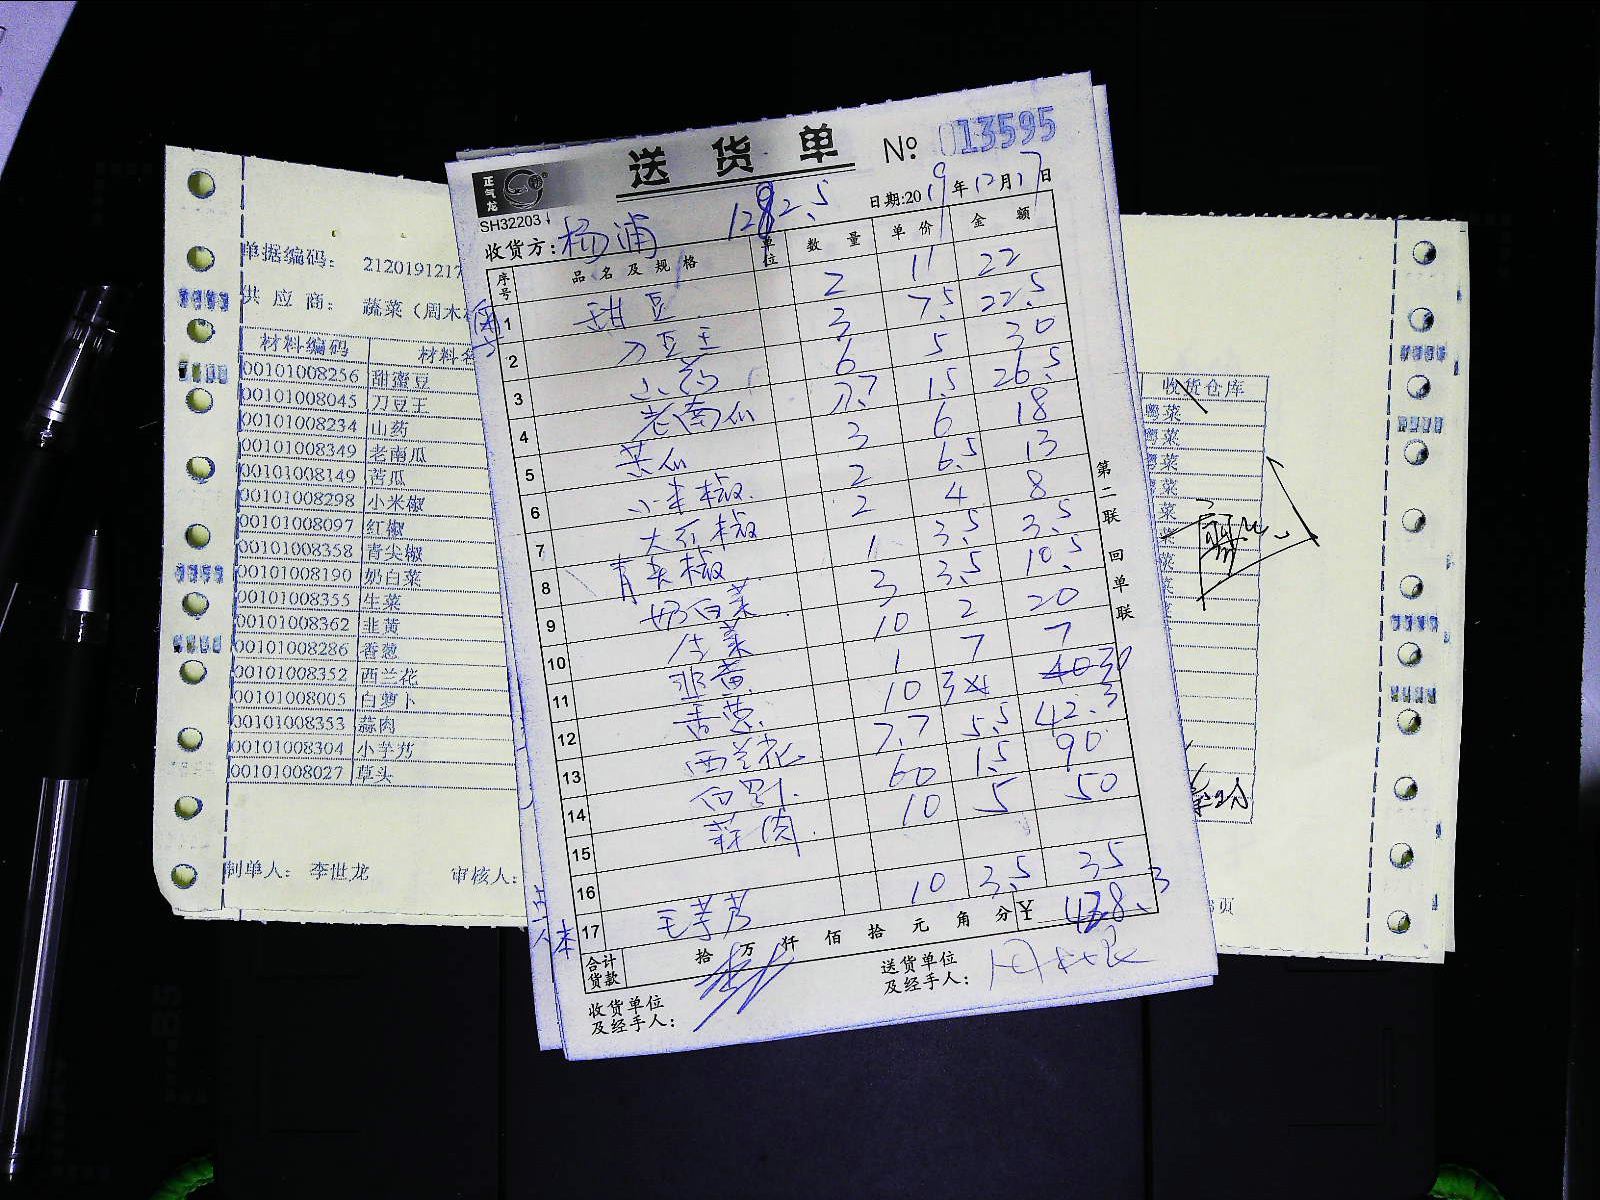 送货单 № 013595
正气龙
SH32203
日期:2019年12月17日
收货方:杨浦 1282.5
序号 品名及规格 单位 数量 单价 金额
1 甜豆 2 11 22
2 刀豆王 3 7.5 22.5
3 山药 6 5 30
4 老南瓜 17.7 1.5 26.5
5 苦瓜 3 6 18
6 小米椒 2 6.5 13
7 大红椒 2 4 8
8 青尖椒 1 3.5 3.5
9 奶白菜 3 3.5 10.5
10 生菜 10 2 20
11 韭黄 1 7 7
12 香葱 10 3 30
13 西兰花 7.7 5.5 42.3
14 白罗卜 60 1.5 90
15 蒜肉 10 5 50
16
17 毛芋艿 10 3.5 35
合计货款 拾万仟佰拾元角分 ¥ 428.3
收货单位及经手人:
送货单位及经手人:
第二联 回单联
单据编码: 2120191217
供应商: 蔬菜（周木
材料编码 材料名
00101008256 甜蜜豆
00101008045 刀豆王
00101008234 山药
00101008349 老南瓜
00101008149 苦瓜
00101008298 小米椒
00101008097 红椒
00101008358 青尖椒
00101008190 奶白菜
00101008355 生菜
00101008362 韭黄
00101008286 香葱
00101008352 西兰花
00101008005 白萝卜
00101008353 蒜肉
00101008304 小芋艿
00101008027 草头
制单人: 李世龙 审核人:
收货仓库
粤菜
粤菜
粤菜
粤菜
菜
菜
菜
菜
页